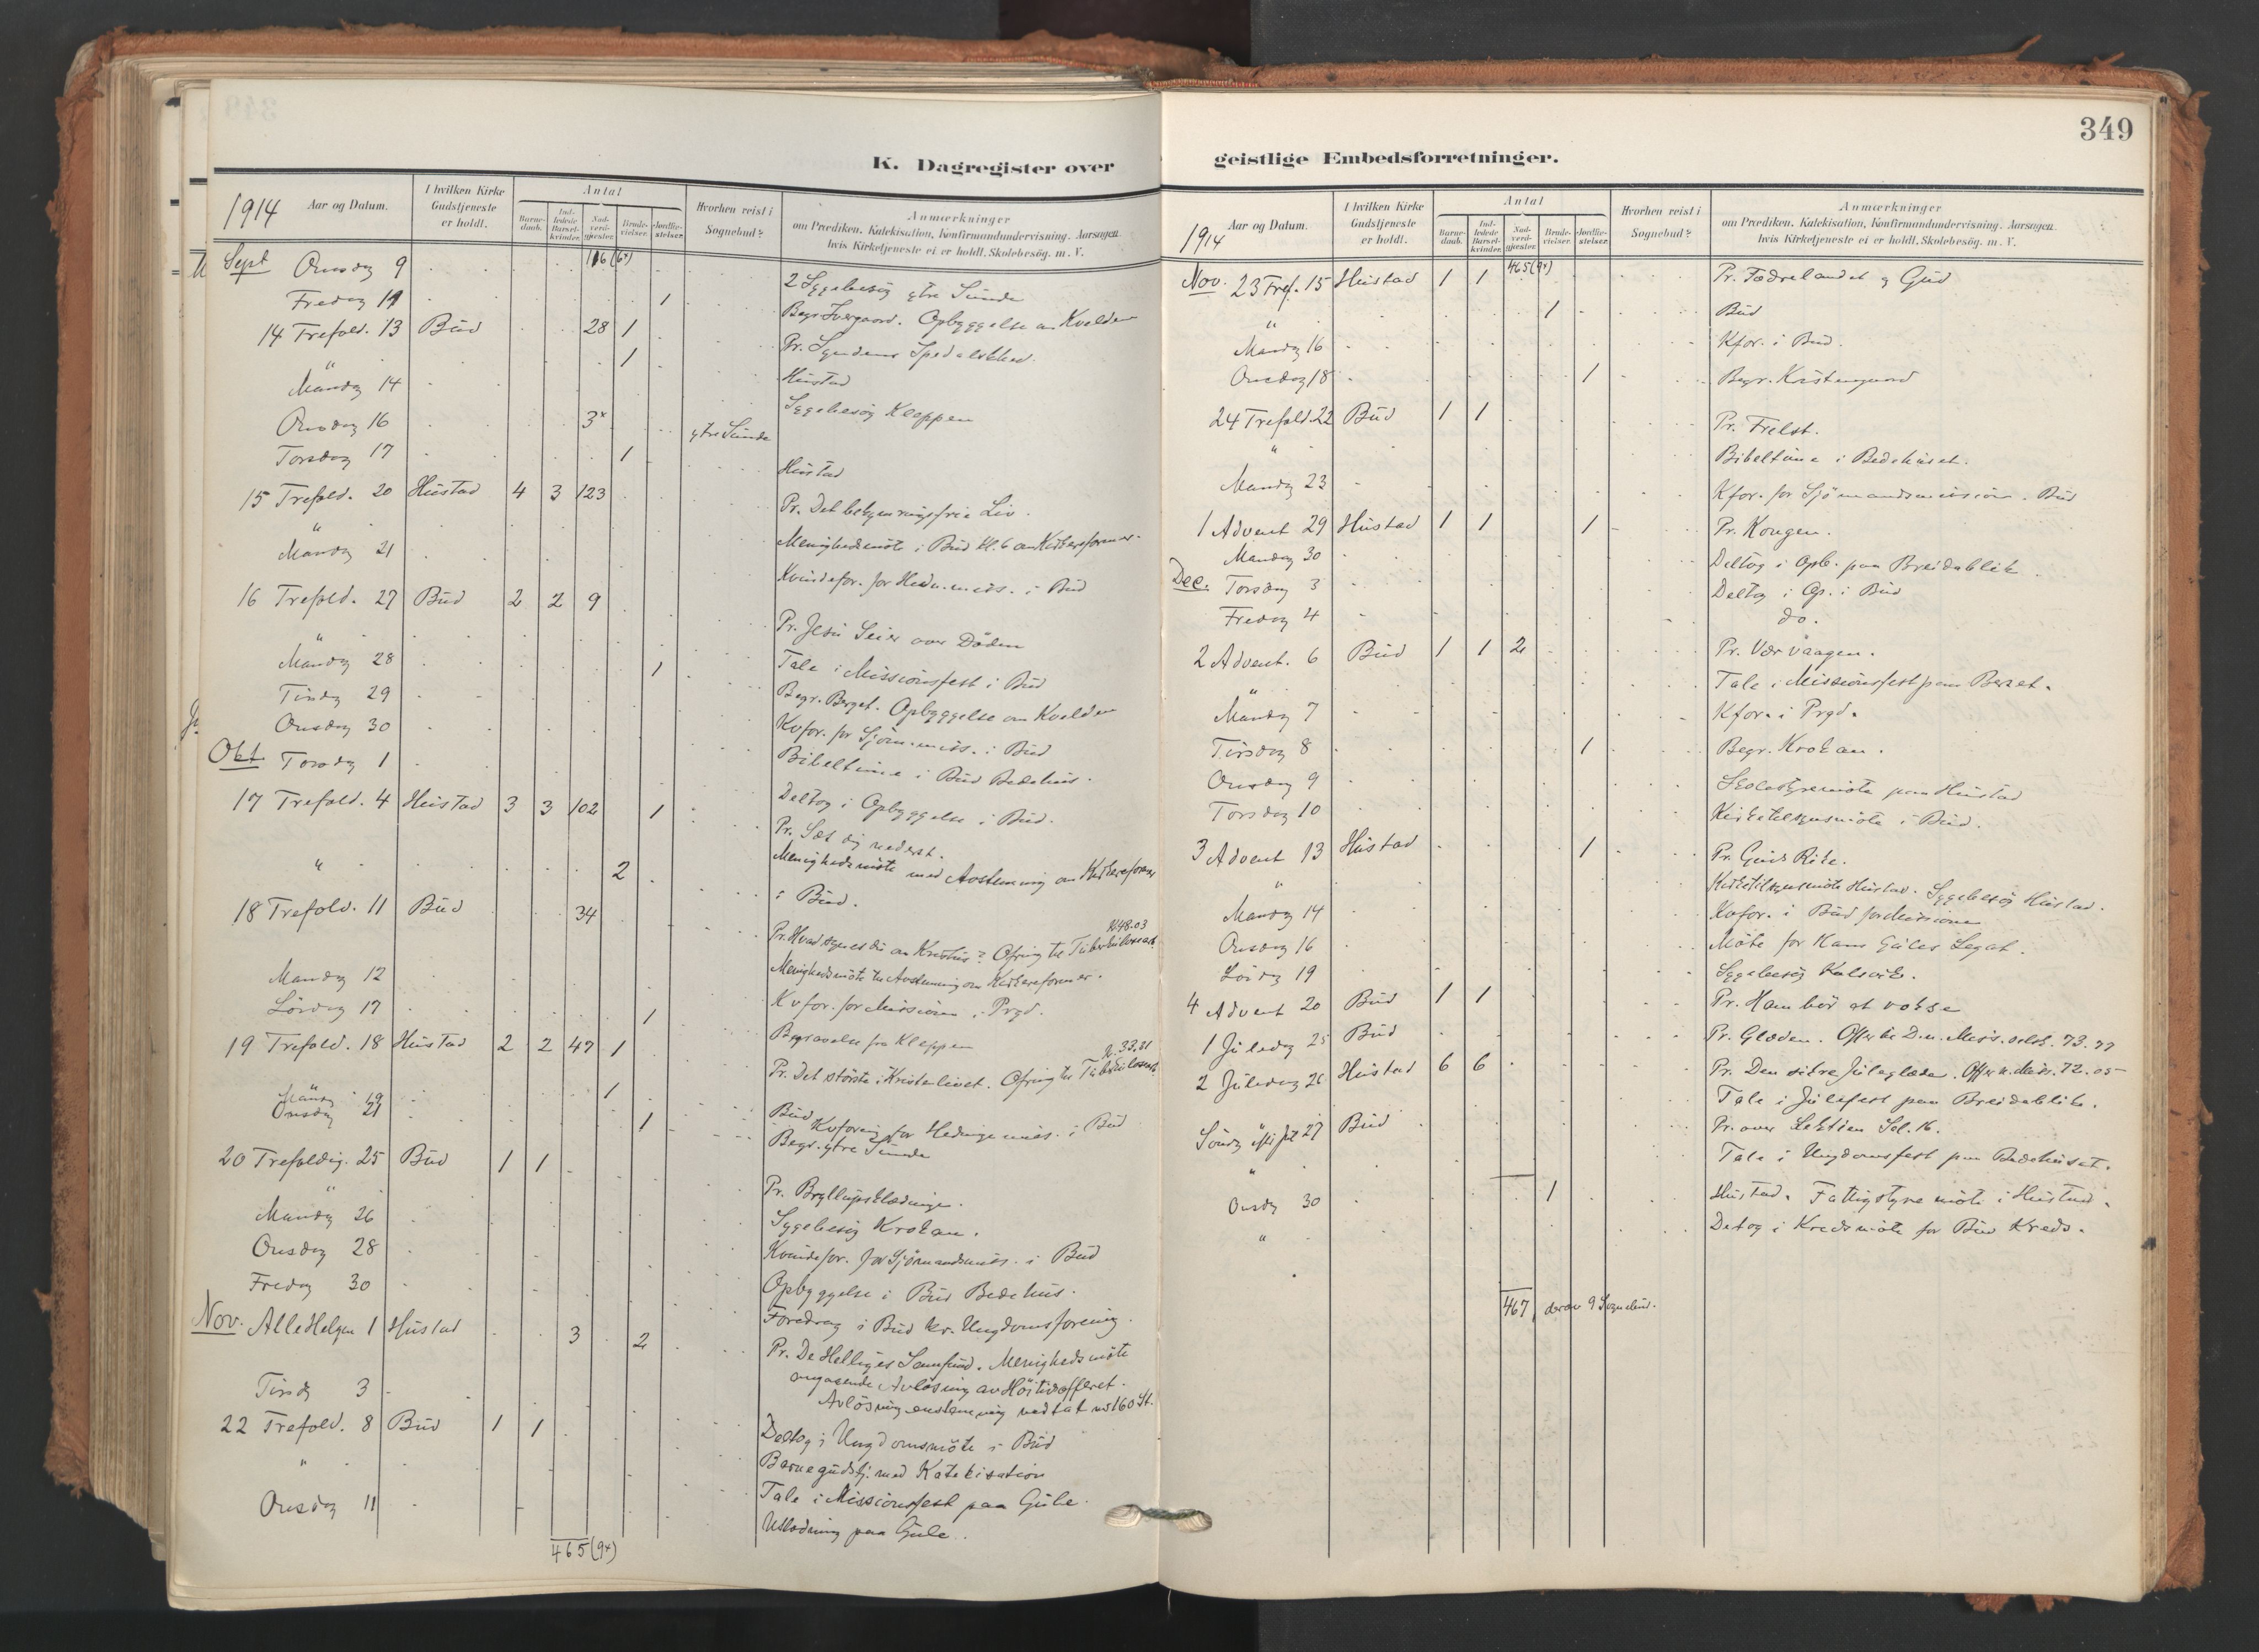 K. Dagregister over
1914 Aar og Datum. I hvilken Kirke Gudstjeneste er holdt. Antal Barne-daab. Ind-ledede Barsel-kvinder. Nad-verd-gjester. Brude-vielser. Jordfæ-stelser. Hvorhen reist i Sognebud? Anmærkninger om Prædiken, Katekisation, Konfirmandundervisning, Aarsagen hvis Kirketjeneste ei er holdt, Skolebesøg m. V.
Sept Onsdag 9 116 (6×) 2 Sygebesøg ytre Sunde
Fredag 11 1 Begr. Opbyggelse om Kvelden
14 Trefold. 13 Bud 28 1 Pr. Syndens Spedalskhed.
" 1 Hustad
Mandag 14 Sygebesøg Kleppen
Onsdag 16 3× ytre Sunde
Torsdag 17 1 Hustad
15 Trefold. 20 Hustad 4 3 123 Pr. Det bekymringsfrie Liv.
" Menighedsmöte i Bud kl. 6 om Kirkereformer.
Mandag 21 Kvindefor. for Hedn.miss. i Bud
16 Trefold. 27 Bud 2 2 9 Pr. Jesu Seier over Döden
" Tale i Missionsfest i Bud
Mandag 28 1 Begr. Berget. Opbyggelse om Kvelden
Tirsdag 29 Kvfor. for Sjöm.miss. i Bud
Onsdag 30 Bibeltime i Bud Bedehus.
Okt. Torsdag 1 Deltog i Opbyggelse i Bud.
17 Trefold. 4 Hustad 3 3 102 1 Pr. Sæt dig nederst.
" 2 Menighedsmöte med Avstemning om Kirkereformer
i Bud.
18 Trefold. 11 Bud 34 Pr. Hvad synes du om Kristus? Ofring til Tuberkulosesak. Kr 48.03
Menighedsmöte til Avstemning om Kirkereformer.
Mandag 12 Kvfor. for Missionen i Prgd.
Lördag 17 1 Begravelse fra Kleppen
19 Trefold. 18 Hustad 2 2 47 1 Pr. Det störste i Kristenlivet. Ofring til Tuberkulosesak. Kr. 33,21
Mandag 19 1 Bud Kvforening for Hedningemiss. i Bud
Onsdag 21 1 Begr. ytre Sunde
20 Trefoldig. 25 Bud 1 1 Pr. Bryllupsklædningen.
" Sygebesög Krokan.
Mandag 26 Kvindefor. for Sjömandsmiss. i Bud
Onsdag 28 Opbyggelse i Bud Bedehus.
Fredag 30 Foredrag i Bud kr. Ungdomsforening.
Nov. Alle Helgen 1 Hustad 3 2 Pr. De Helliges Samfund. Menighedsmöte
angaaende Avlösning av Höitidsofferet.
Avlösning enstemmig vedtat
Tirsdag 3 Deltog i Ungdomsmöte i Bud
22 Trefold. 8 Bud 1 1 Barnegudstj. med Katekisation
" Tale i Missionsfest paa Gule.
Onsdag 11 Utlodning paa Gule.
465 (9×)
349
geistlige Embedsforretninger.
1914 Aar og Datum. I hvilken Kirke Gudstjeneste er holdt. Antal Barne-daab. Ind-ledede Barsel-kvinder. Nad-verd-gjester. Brude-vielser. Jordfæ-stelser. Hvorhen reist i Sognebud? Anmærkninger om Prædiken, Katekisation, Konfirmandundervisning, Aarsagen hvis Kirketjeneste ei er holdt, Skolebesøg m. V.
465 (9×)
Nov. 23 Tref. 15 Hustad 1 1 Pr. Fædrelandet og Gud
" 1 Bud
Mandag 16 Kfor. i Bud.
Onsdag 18 1 Begr.
24 Trefold. 22 Bud 1 1 Pr. Frelst.
" Bibeltime i Bedehuset.
Mandag 23 Kfor. for Sjömandsmission. Bud
1 Advent 29 Hustad 1 1 1 Pr. Kongen.
Mandag 30 Deltog i Opb. paa Breidablik.
Dec. Torsdag 3 Deltog i Op. i Bud
Fredag 4 do.
2 Advent. 6 Bud 1 1 2 Pr. Vær vaagen.
" Tale i Missionsfest paa Berget.
Mandag 7 Kfor. i Prgd.
Tirsdag 8 1 Begr. Krokan.
Onsdag 9 Skolestyremöte paa Hustad
Torsdag 10 Kirketilsynsmöte i Bud.
3 Advent 13 Hustad 1 Pr. Guds Rike.
" Kirketilsynsmöte Hustad. Sygebesög Hustad.
Mandag 14 Kvfor. i Bud for Missionen
Onsdag 16 Möte for Hans Gules Legat.
Lördag 19 Sygebesög
4 Advent 20 Bud 1 1 Pr. Ham bör at vokse
1 Juledag 25 Bud Pr. Glæden. Offer til D. n. Miss. selsk. 73.77
2 Juledag 26 Hustad 6 6 Pr. Den sikre Juleglæde. Offer n. Miss. 72.05
Tale i Julefest paa Breidablik.
Söndag efter Jul 27 Bud Pr. over Lektien Sal. 16.
" Tale i Ungdomsfest paa Bedehuset.
Onsdag 30 1 Hustad. Fattigstyremöte i Hustad.
" Deltog i Kredsmöte for Bud Kreds.
467, derav 9 Sognebud.